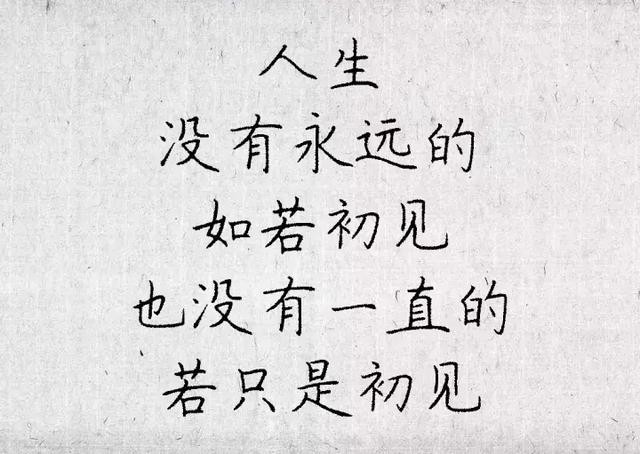 人生
没有永远的
如若初见
也没有一直的
若只是初见